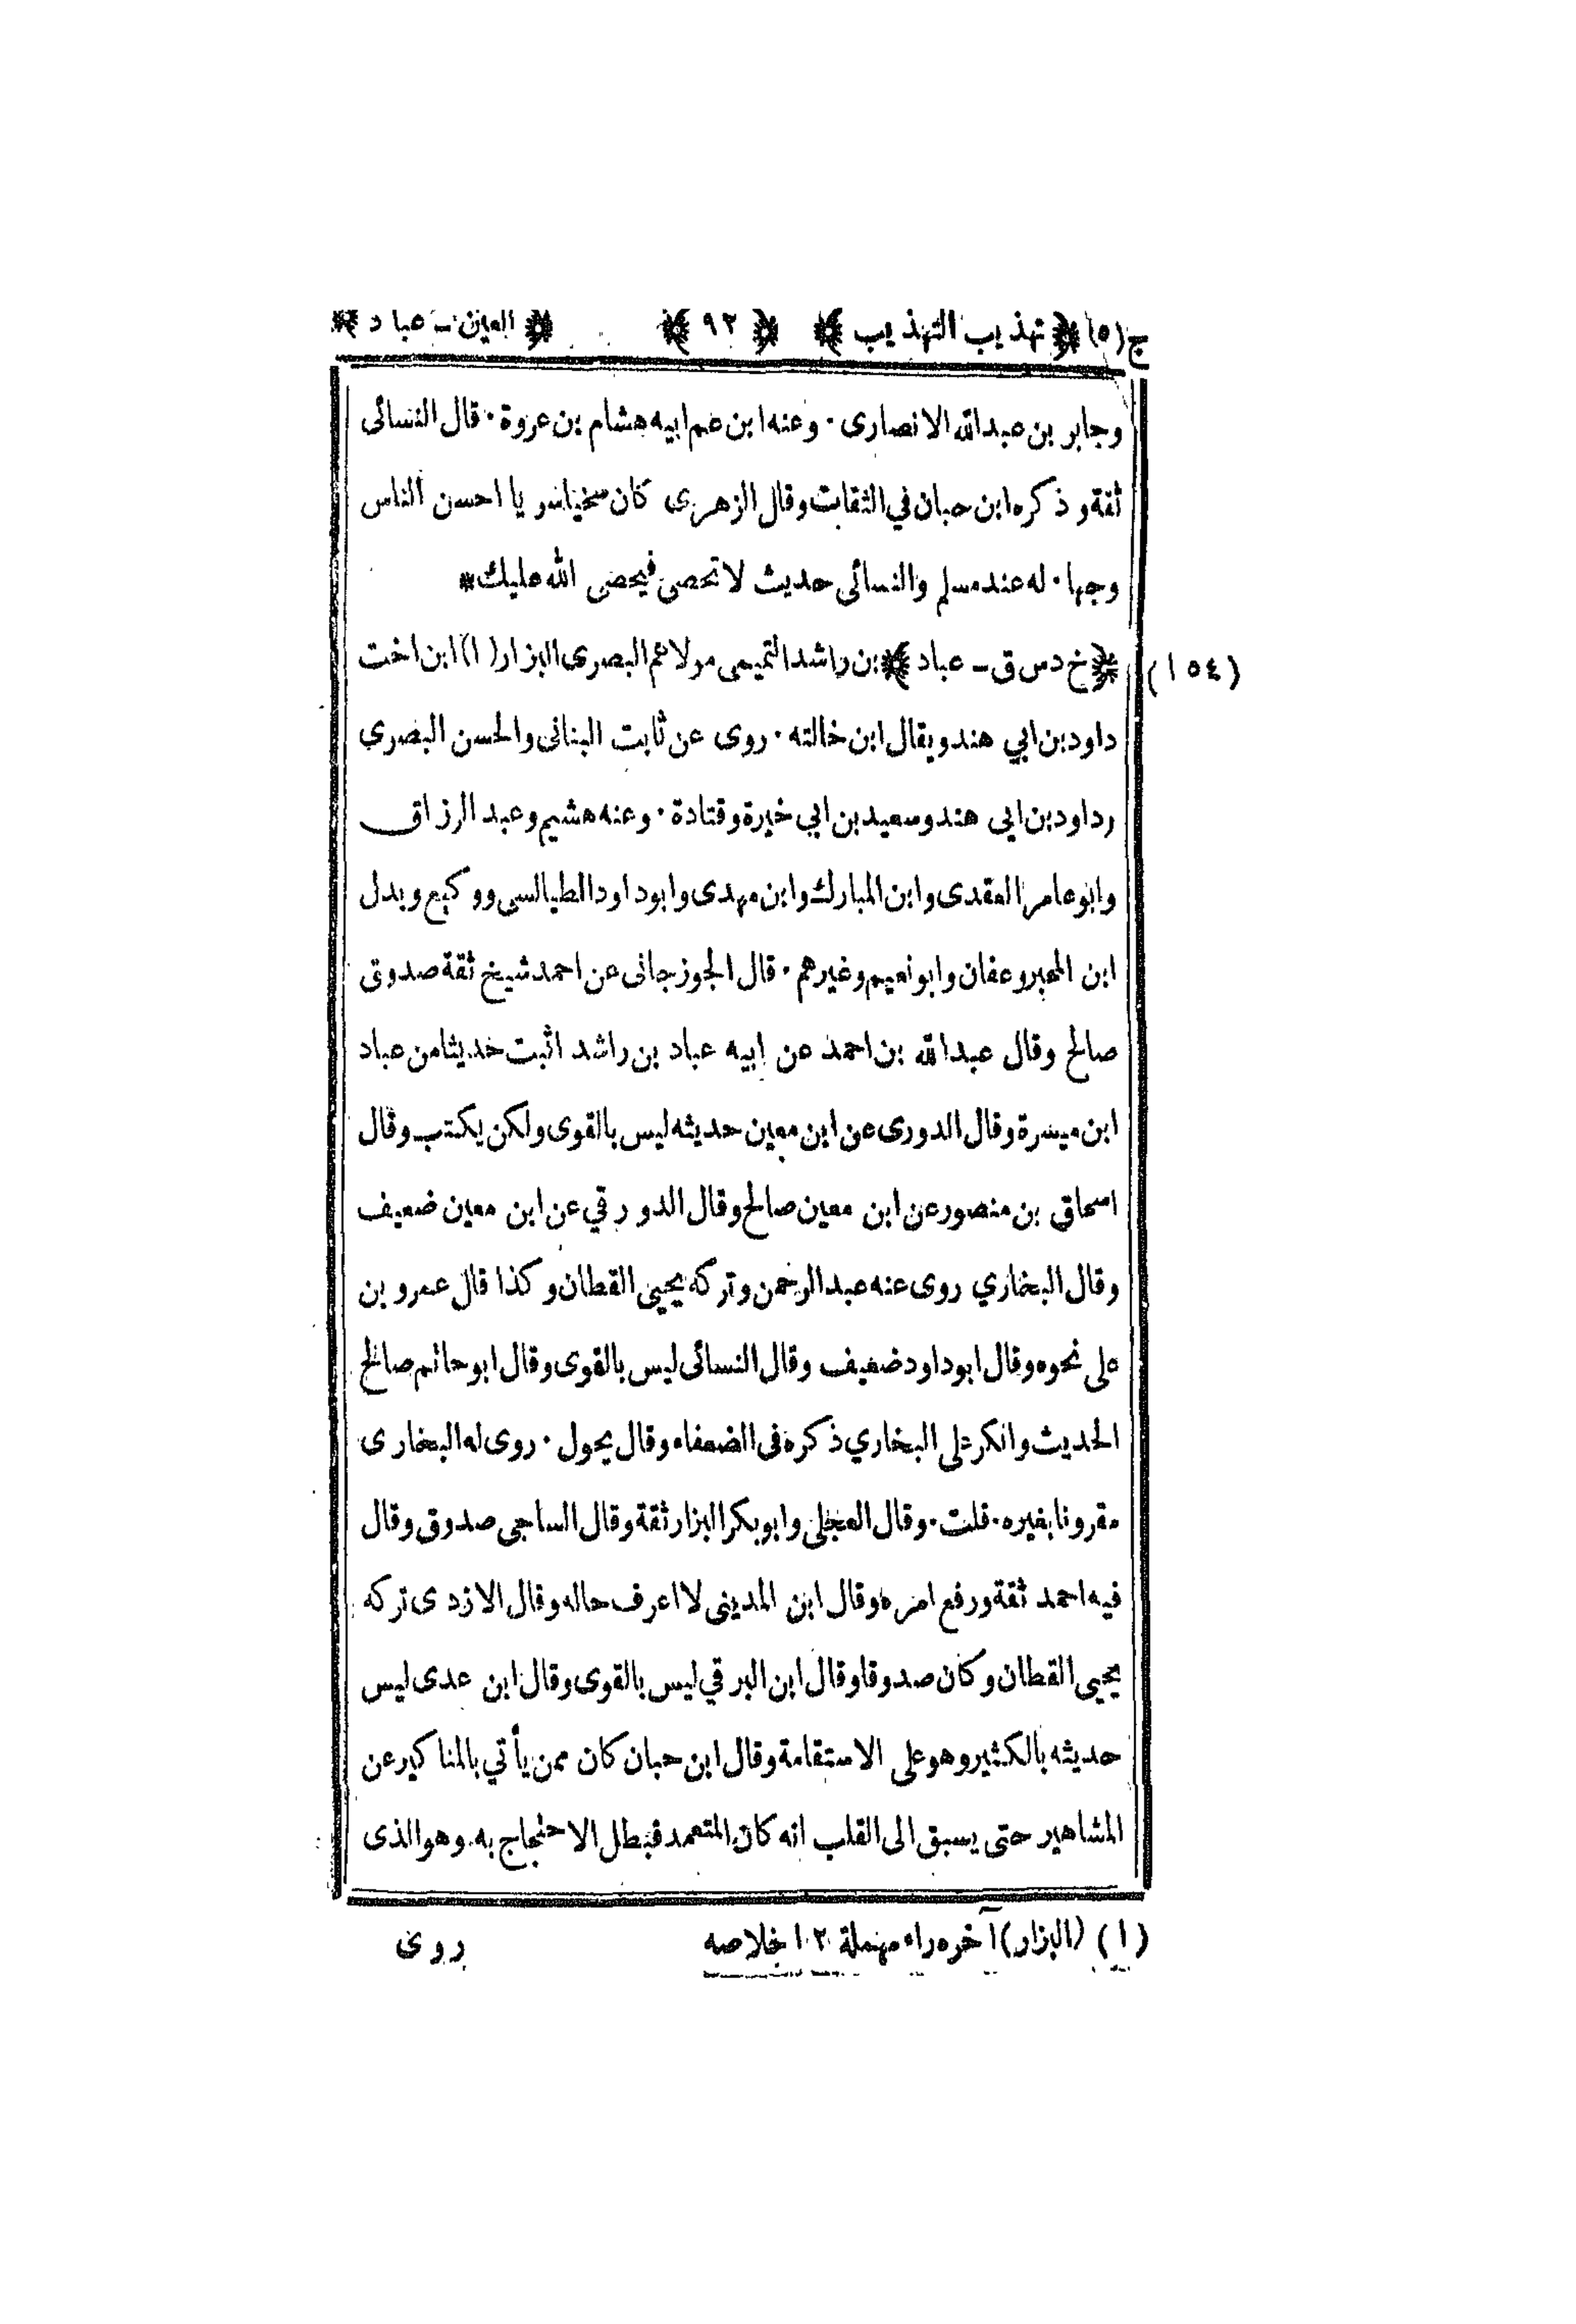 ج(٥) ﴿تهذيب التهذيب﴾ ﴿٩٢﴾ ﴿العين - عباد﴾
وجابر بن عبدالله الانصارى · وعنه ابن عم ابيه هشام بن عروة · قال النسائى
ثقة وذكره ابن حبان في الثقات وقال الزهرى كان سخيا سريا احسن الناس
وجها · له عند مسلم والنسائى حديث لا تحصى فيحصى الله عليك*
(١٥٤) ﴿خ د س ق - عباد﴾ بن راشد التميمى مولاهم البصرى البزار(١) ابن اخت
داود بن ابي هند ويقال ابن خالته · روى عن ثابت البنانى والحسن البصري
وداود بن ابى هند وسعيد بن ابي خيرة وقتادة · وعنه هشيم وعبد الرزاق
وابو عامر العقدى وابن المبارك وابن مهدى وابو داود الطيالسى ووكيع وبدل
ابن المحبر وعفان وابو نعيم وغيرهم · قال الجوزجانى عن احمد شيخ ثقة صدوق
صالح وقال عبدالله بن احمد عن ابيه عباد بن راشد اثبت حديثا من عباد
ابن ميسرة وقال الدورى عن ابن معين حديثه ليس بالقوى ولكن يكتب وقال
اسحاق بن منصور عن ابن معين صالح وقال الدورقي عن ابن معين ضعيف
وقال البخاري روى عنه عبد الرحمن وتركه يحيى القطان وكذا قال عمرو بن
على نحوه وقال ابو داود ضعيف وقال النسائى ليس بالقوى وقال ابو حاتم صالح
الحديث وانكر على البخاري ذكره فى الضعفاء وقال يحول · روى له البخارى
مقرونا بغيره · قلت · وقال العجلى وابو بكر البزار ثقة وقال الساجى صدوق وقال
فيه احمد ثقة ورفع امره وقال ابن المدينى لا اعرف حاله وقال الازدى تركه
يحيى القطان وكان صدوقا وقال ابن البرقي ليس بالقوى وقال ابن عدى ليس
حديثه بالكثير وهو على الاستقامة وقال ابن حبان كان ممن يأتي بالمناكير عن
المشاهير حتى يسبق الى القلب انه كان المتعمد فبطل الاحتجاج به وهو الذى
(١) (البزار) آخره راء مهملة ١٢ خلاصه
روى